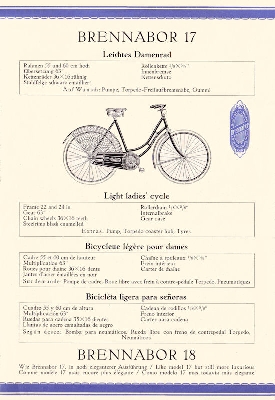 BRENNABOR 17
Leichtes Damenrad
Rahmen 55 und 60 cm hoch
Übersetzung 65"
Kettenräder 36×16 zähnig
Stahlfelge schwarz emailliert
Rollenkette
Innenbremse
Kettenschutz
Auf Wunsch: Pumpe, Torpedo-Freilaufbremsnabe, Gummi
Light ladies' cycle
Frame 22 and 24 in
Gear 65"
Chain wheels 36×16 teeth
Steelrims black enamelled
Rollerchain
Internalbrake
Gear case
Extras: Pump, Torpedo coaster hub, Tyres
Bicyclette légère pour dames
Cadre 55 et 60 cm de hauteur
Multiplication 65"
Roues pour chaîne 36×16 dents
Jantes d'acier émaillées en noir
Chaîne à rouleaux
Frein intérieur
Carter de chaîne
Sur demande: Pompe de cadre, Roue libre avec frein à contre-pédale Torpedo, Pneumatiques
Bicicleta ligera para señoras
Cuadro 55 y 60 cm de altura
Multiplicación 65"
Ruedas para cadena 36×16 dientes
Llantas de acero esmaltadas de negro
Cadena de rodillos
Freno interior
Cárter para cadena
Según deseo: Bomba para neumáticos, Rueda libre con freno de contrapedal Torpedo,
Neumáticos
BRENNABOR 18
Wie Brennabor 17, in noch eleganterer Ausführung / Like model 17 but still more luxurious
Comme modèle 17 mais encore plus élégante / Como modelo 17 mas todavía más elegante